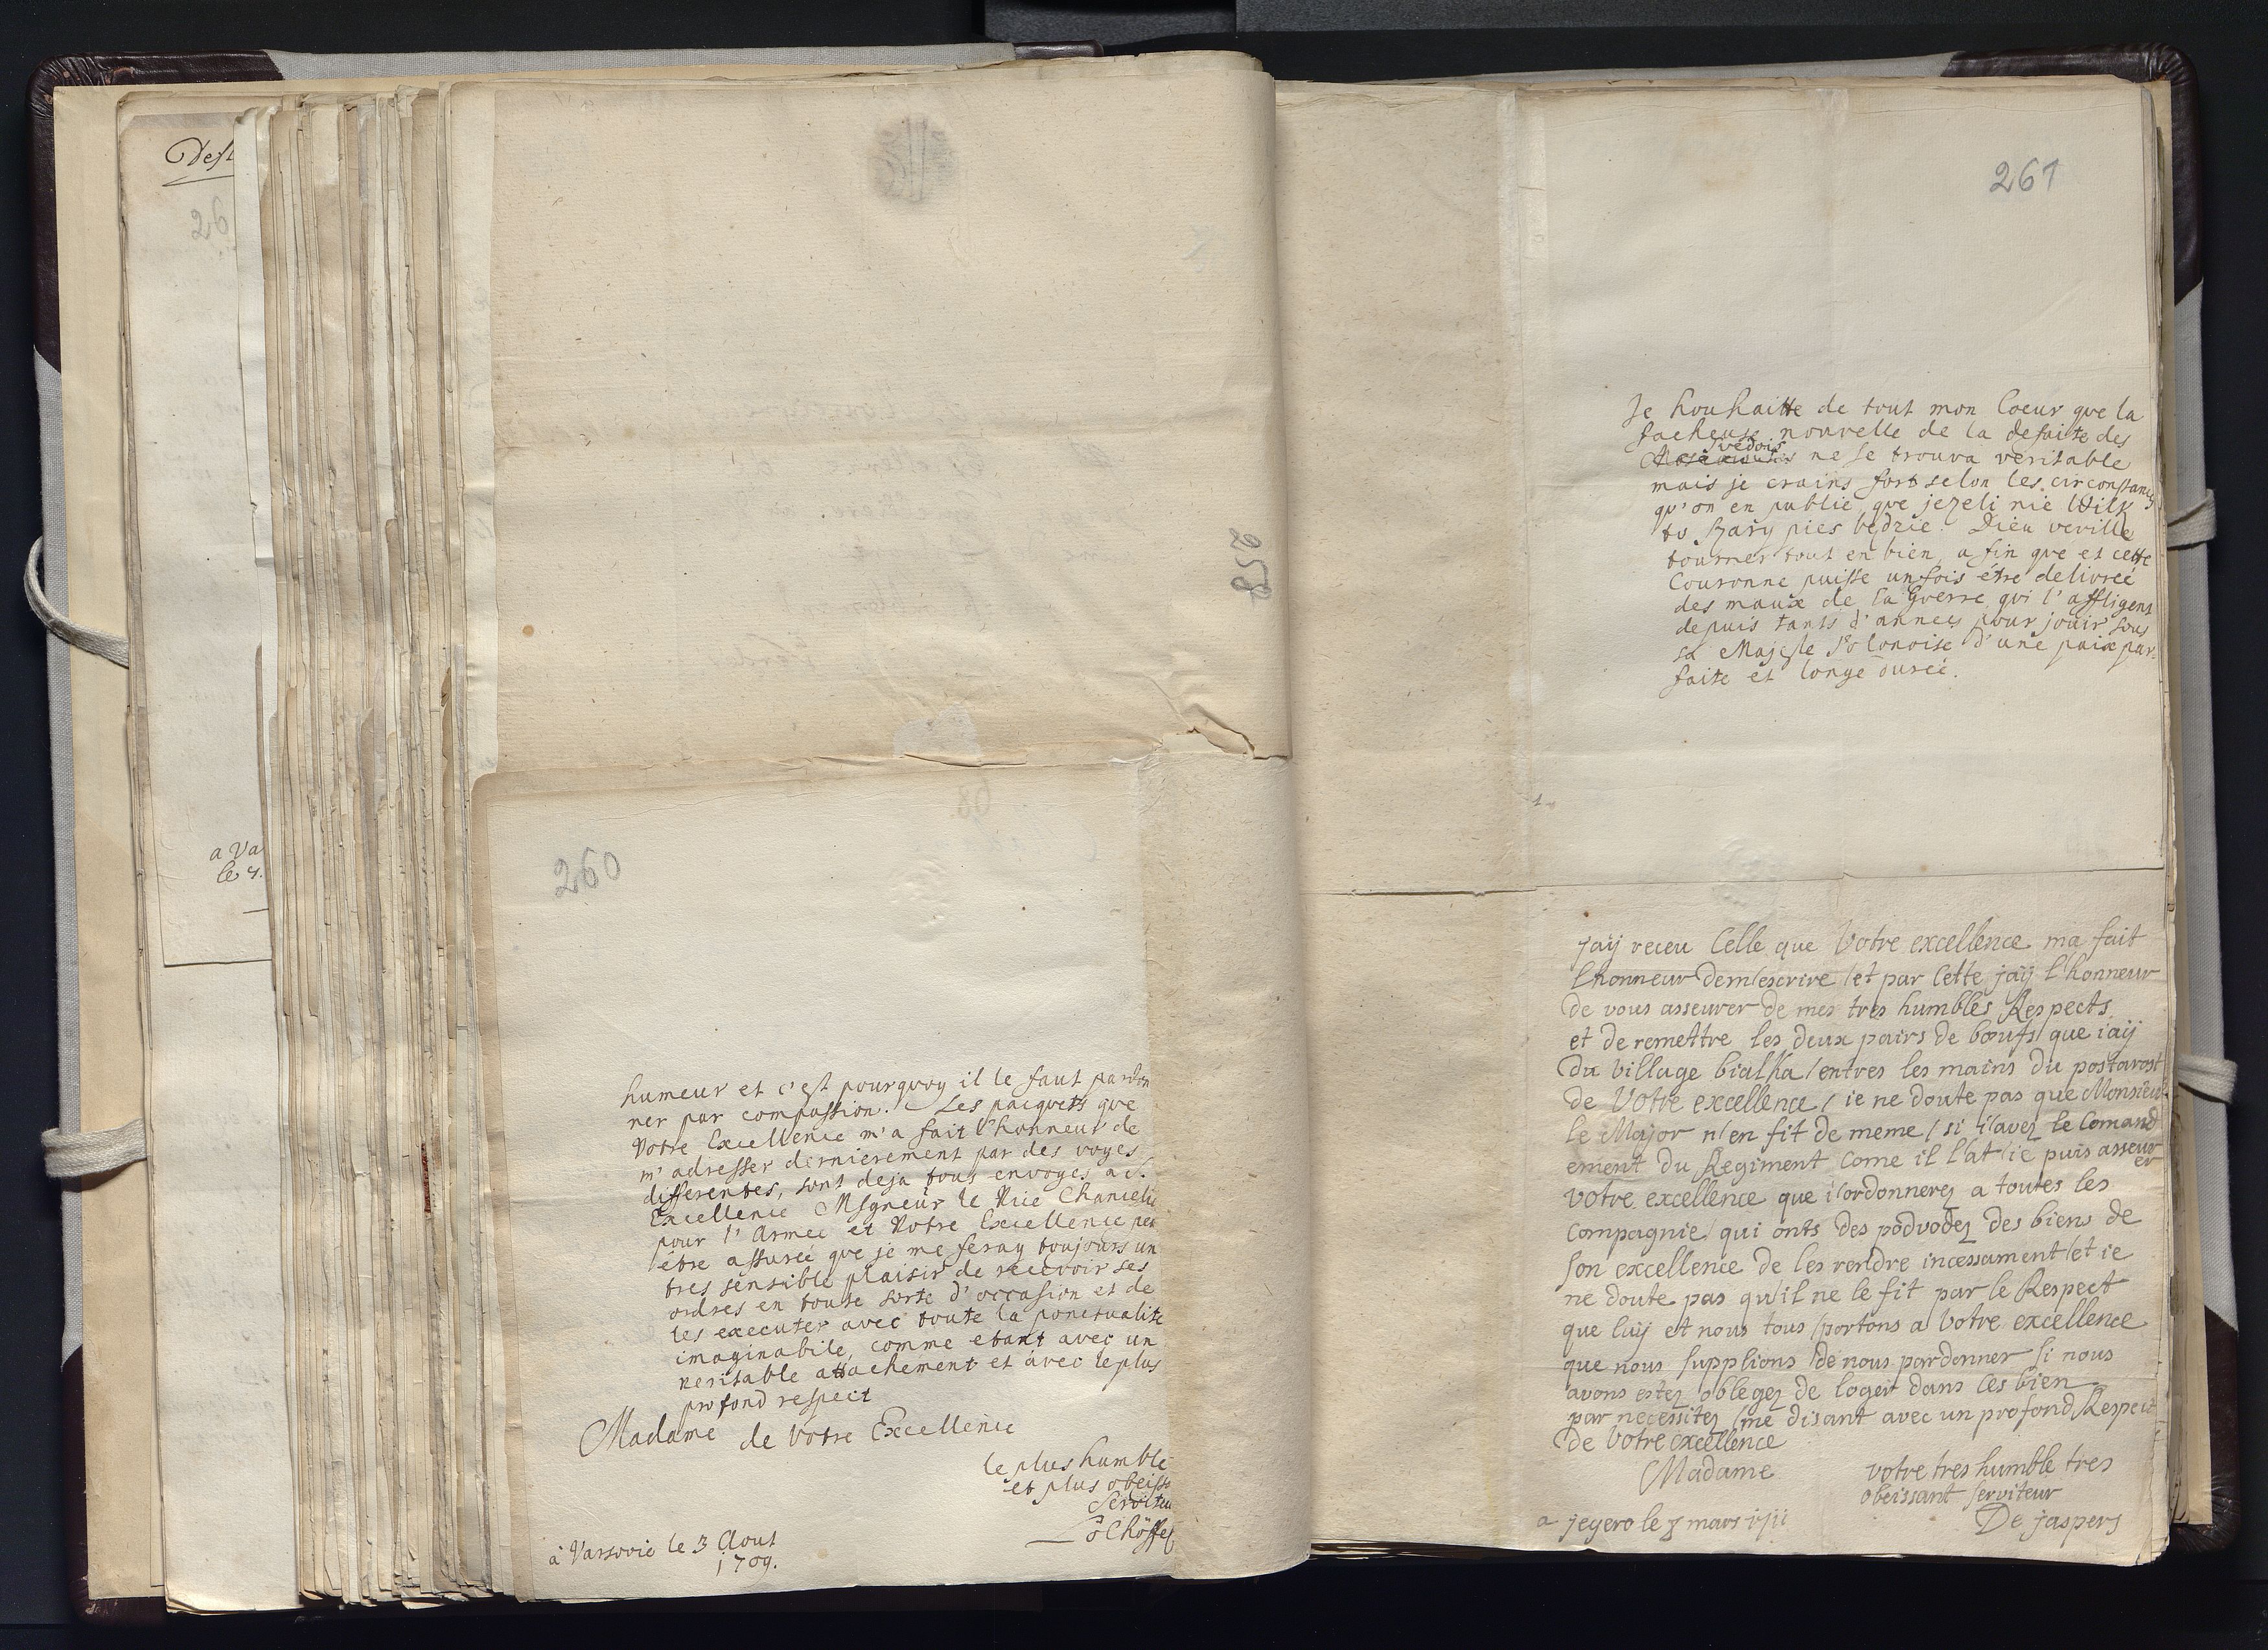 Des
26
a Va
le 4.
258
260
humeur et c'est pourquoy il le faut pardon
ner par compassion. Les pacquets que
Votre Excellence m'a fait l'honneur de
m'adresser dernierement par des voyes
differentes, sont deja tous envoyes a S.
Excellence Msgneur le Vice Chancelie
pour l'Armee et Votre Excellence peu
être assureé que je me feray toujours un
tres sensible plaisir de recevoir ses
ordres en toute sorte d'occasion et de
les executer avec toute la ponctualite
imaginabile, comme etant avec un
veritable attachement et avec le plus
profond respect
Madame de Votre Excellence
le plus humble
et plus obeissa
Serviteu
Löchöffel
à Varsovie le 3 Aout
1709.
261
Je souhaitte de tout mon Coeur que la
facheuse nouvelle de la defaite des
Svedois
ne se trouva veritable
mais je crains fort selon les circonstances
qu'on en publie que jezeli nie Wilk
to szary pies będzie. Dieu veville
tourner tout en bien, a fin que et cette
Couronne puisse un fois étre delivreé
des maux de la Guerre qui l'affligent
depuis tants d'anneés pour jouir sous
sa Majeste Polonoise d'une paix par-
faite et longe dureé.
jaÿ receu Celle que Votre excellence ma fait
lhonneur dem'escrire et par Cette jaÿ l'honneur
de vous asseurer de mes tres humbles Respects
et de remettre les deux pairs de bœufs que iaÿ
du village bialka entres les mains du postarost
de Votre excellence, ie ne doute pas que Monsieur
le Major n'en fit de meme si il avez le Comand
ement du Regiment Come il l'at ie puis asseur
er
Votre excellence que il ordonnerez a toutes les
compagnie qui onts des podvodez des biens de
son excellence de les rendre incessament et ie
ne doute pas qu'il ne le fit par le Respect
que luÿ et nous tous portons a Votre excellence
que nous supplions de nous pardonner si nous
avons estez oblegez de loger dans ces bien
par necessitez me disant avec un profond Respect
de Votre excellence
Madame votre tres humble tres
obeissant serviteur
De jaspers
a jegero le 8 mars 1711